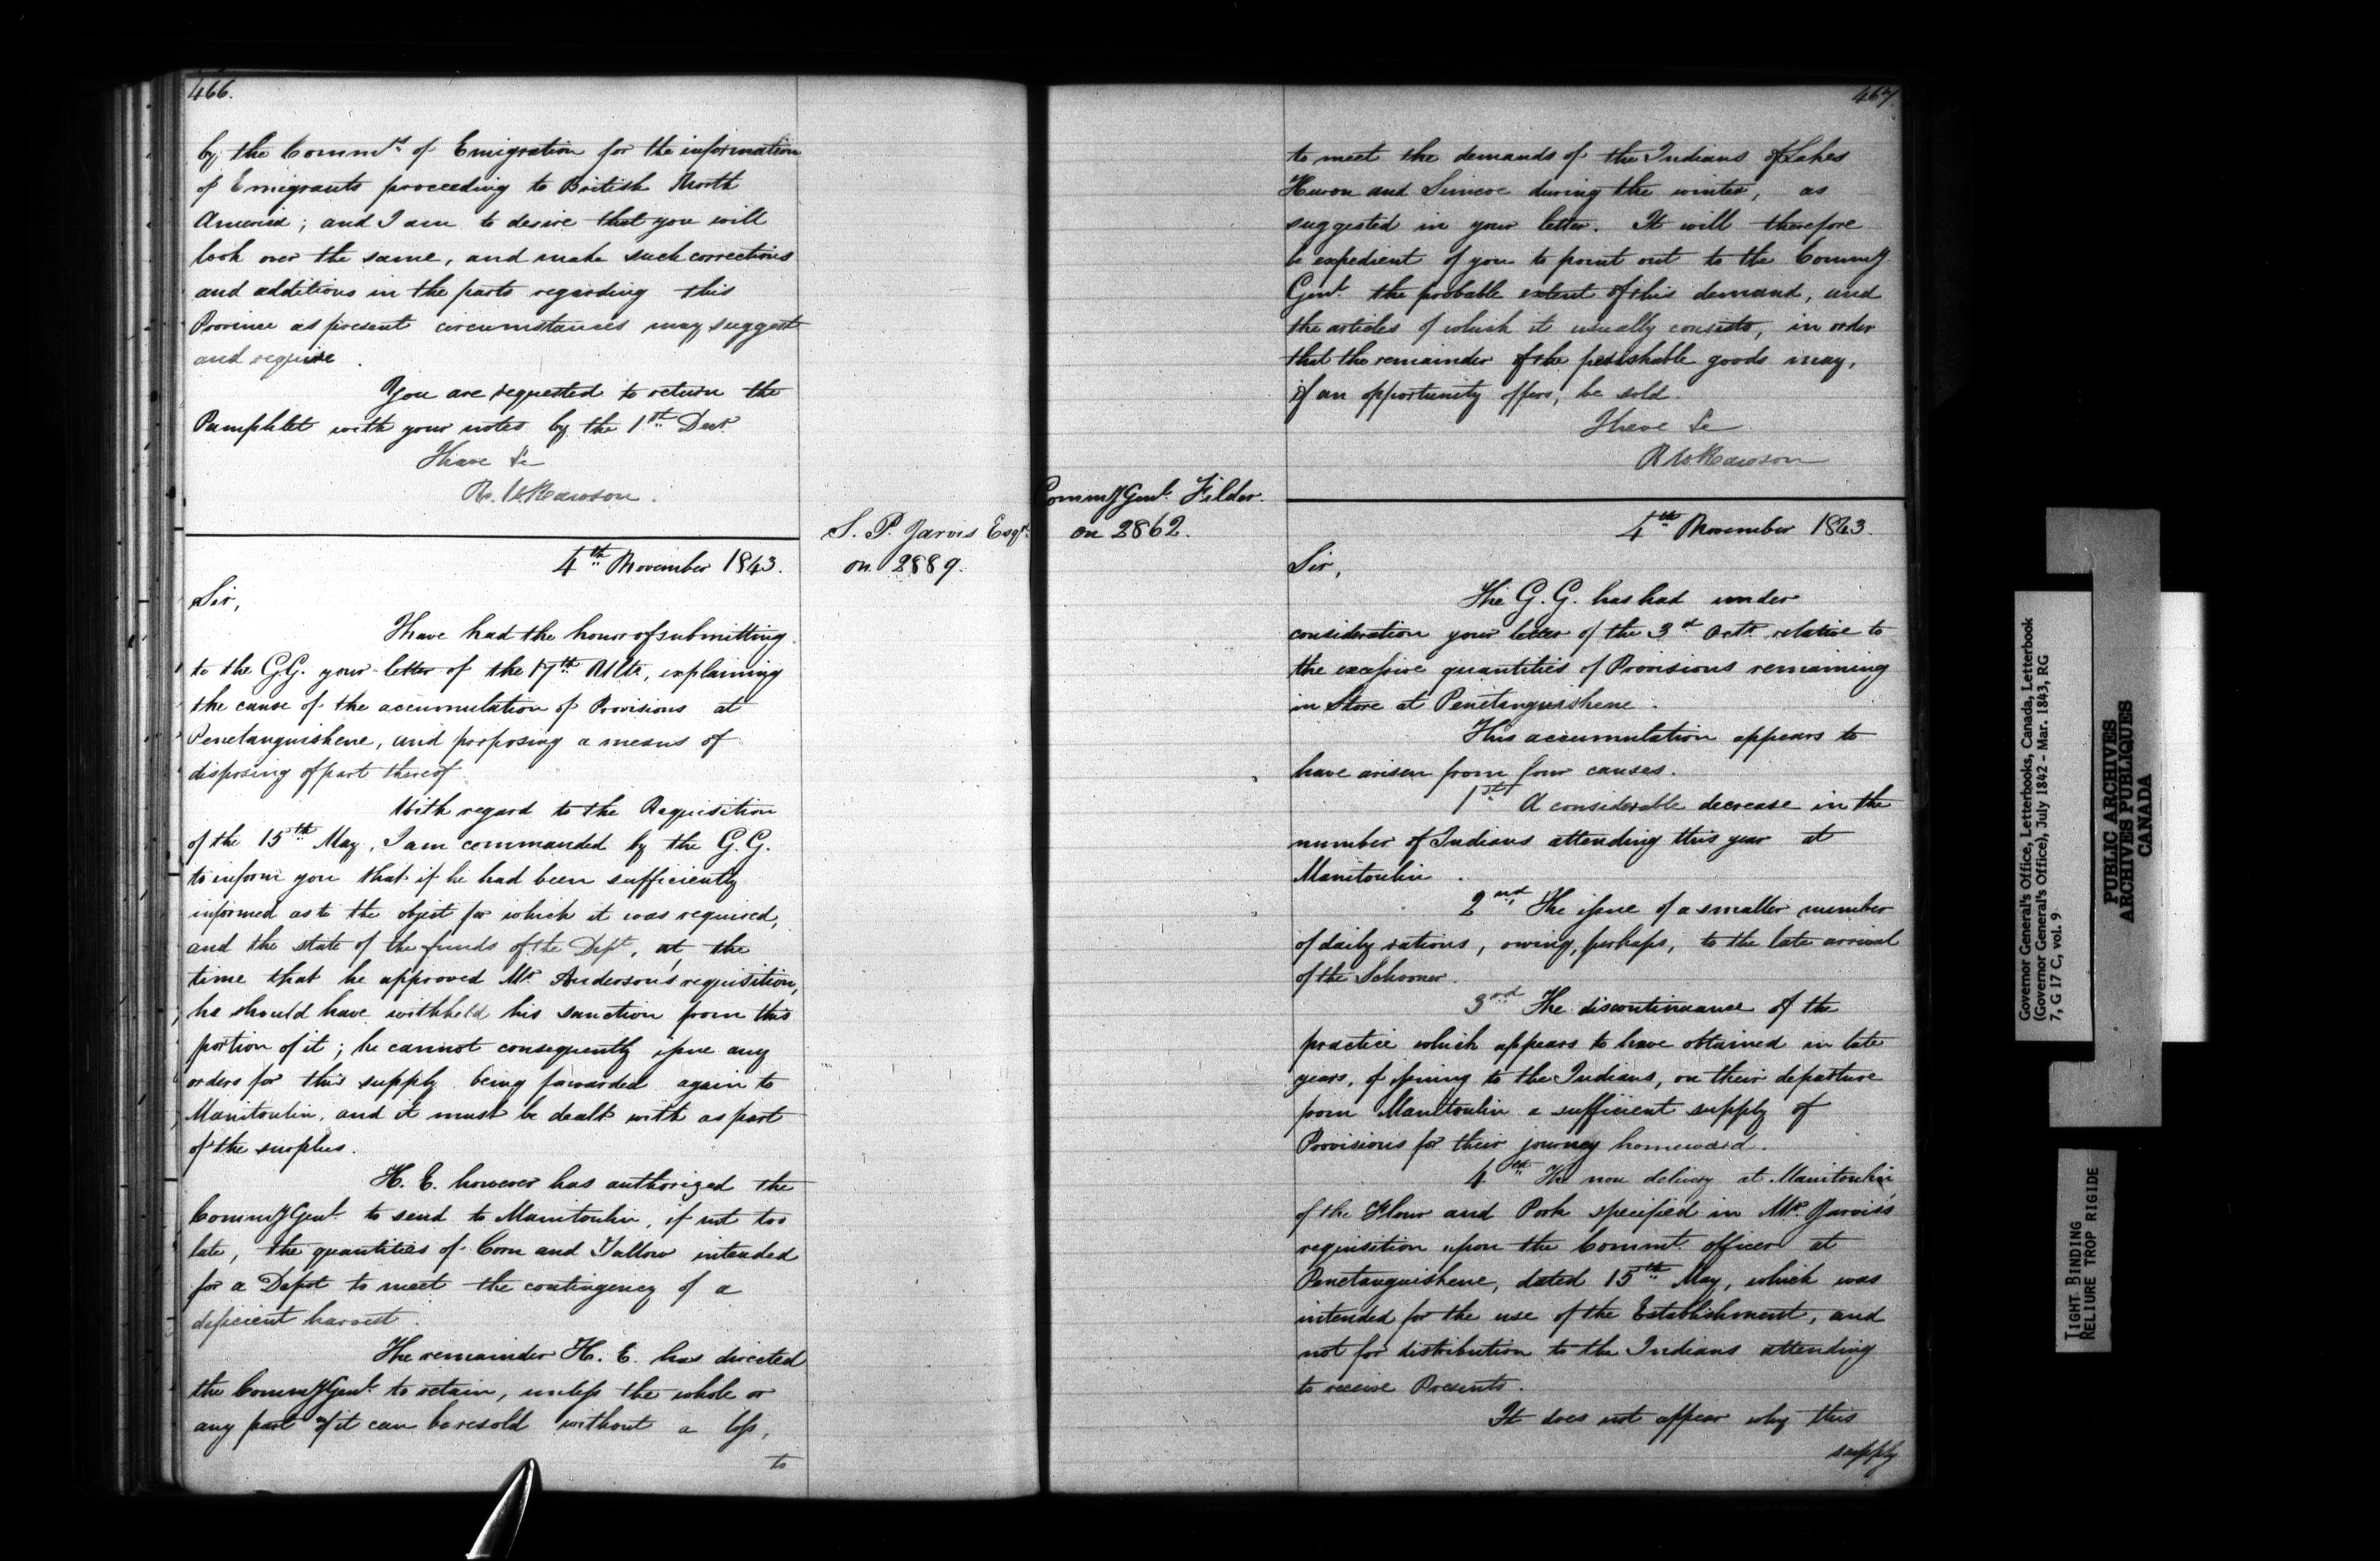 466.
by the Commrs of Emigration for the information
of Emigrants proceeding to British North
America; and I am to desire that you will
look over the same, and make such corrections
and additions in the parts regarding this
Province as present circumstances may suggest
and require.
You are requested to return the
Pamphlet with your notes by the 1st Decr
I have &c
R. W. Rawson.
S. P. Jarvis Esqr.
on 2889.
4th November 1843.
Sir,
I have had the honor of submitting
to the G.G. your letter of the 17th Ulto, explaining
the cause of the accumulation of Provisions at
Penetanguishene, and proposing a means of
disposing of part thereof
With regard to the Requisition
of the 15th May, I am commanded by the G.G.
to inform you that if he had been sufficiently
informed as to the object for which it was required,
and the state of the funds of the Dept, at the
time that he approved Mr Anderson's requisition,
he should have withheld his sanction from this
portion of it; he cannot consequently issue any
orders for this supply being forwarded again to
Manitoulin, and it must be dealt with as part
of the surplus.
H. E. however has authorized the
CommyGenl. to send to Manitoulin, if not too
late, the quantities of Corn and Tallow intended
for a Depôt to meet the contingency of a
deficient harvest.
The remainder H. E. has directed
the CommyGenl. to retain, unless the whole or
any part of it can be resold without a loss,
to
467.
to meet the demands of the Indians of Lakes
Huron and Simcoe during the winter, as
suggested in your letter. It will therefore
be expedient of you to point out to the Commy
Genl. the probable extent of this demand, and
the articles of which it usually consists, in order
that the remainder of the perishable goods may,
if an opportunity offers, be sold.
I have &c
R W Rawson
CommyGenl. Filder.
on 2862.
4th November 1843.
Sir,
The G.G. has had under
consideration your letter of the 3d Octr relative to
the excessive quantities of Provisions remaining
in Store at Penetanguishene.
This accumulation appears to
have arisen from four causes.
1st A considerable decrease in the
number of Indians attending this year at
Manitoulin.
2nd The issue of a smaller number
of daily rations, owing, perhaps, to the late arrival
of the Schooner.
3rd The discontinuance of the
practice which appears to have obtained in late
years, of issuing to the Indians, on their departure
from Manitoulin a sufficient supply of
Provisions for their journey homeward.
4th The non delivery at Manitoulin,
of the Flour and Pork specified in Mr. Jarvis's
requisition upon the Commt. officer at
Penetanguishene, dated 15th May, which was
intended for the use of the Establishment, and
not for distribution to the Indians attending
to receive Presents.
It does not appear why this
supply
Governor General's Office, Letterbooks, Canada, Letterbook
(Governor General's Office), July 1842 - Mar. 1843, RG
7, G 17 C, vol. 9
PUBLIC ARCHIVES
ARCHIVES PUBLIQUES
CANADA
TIGHT BINDING
RELIURE TROP RIGIDE